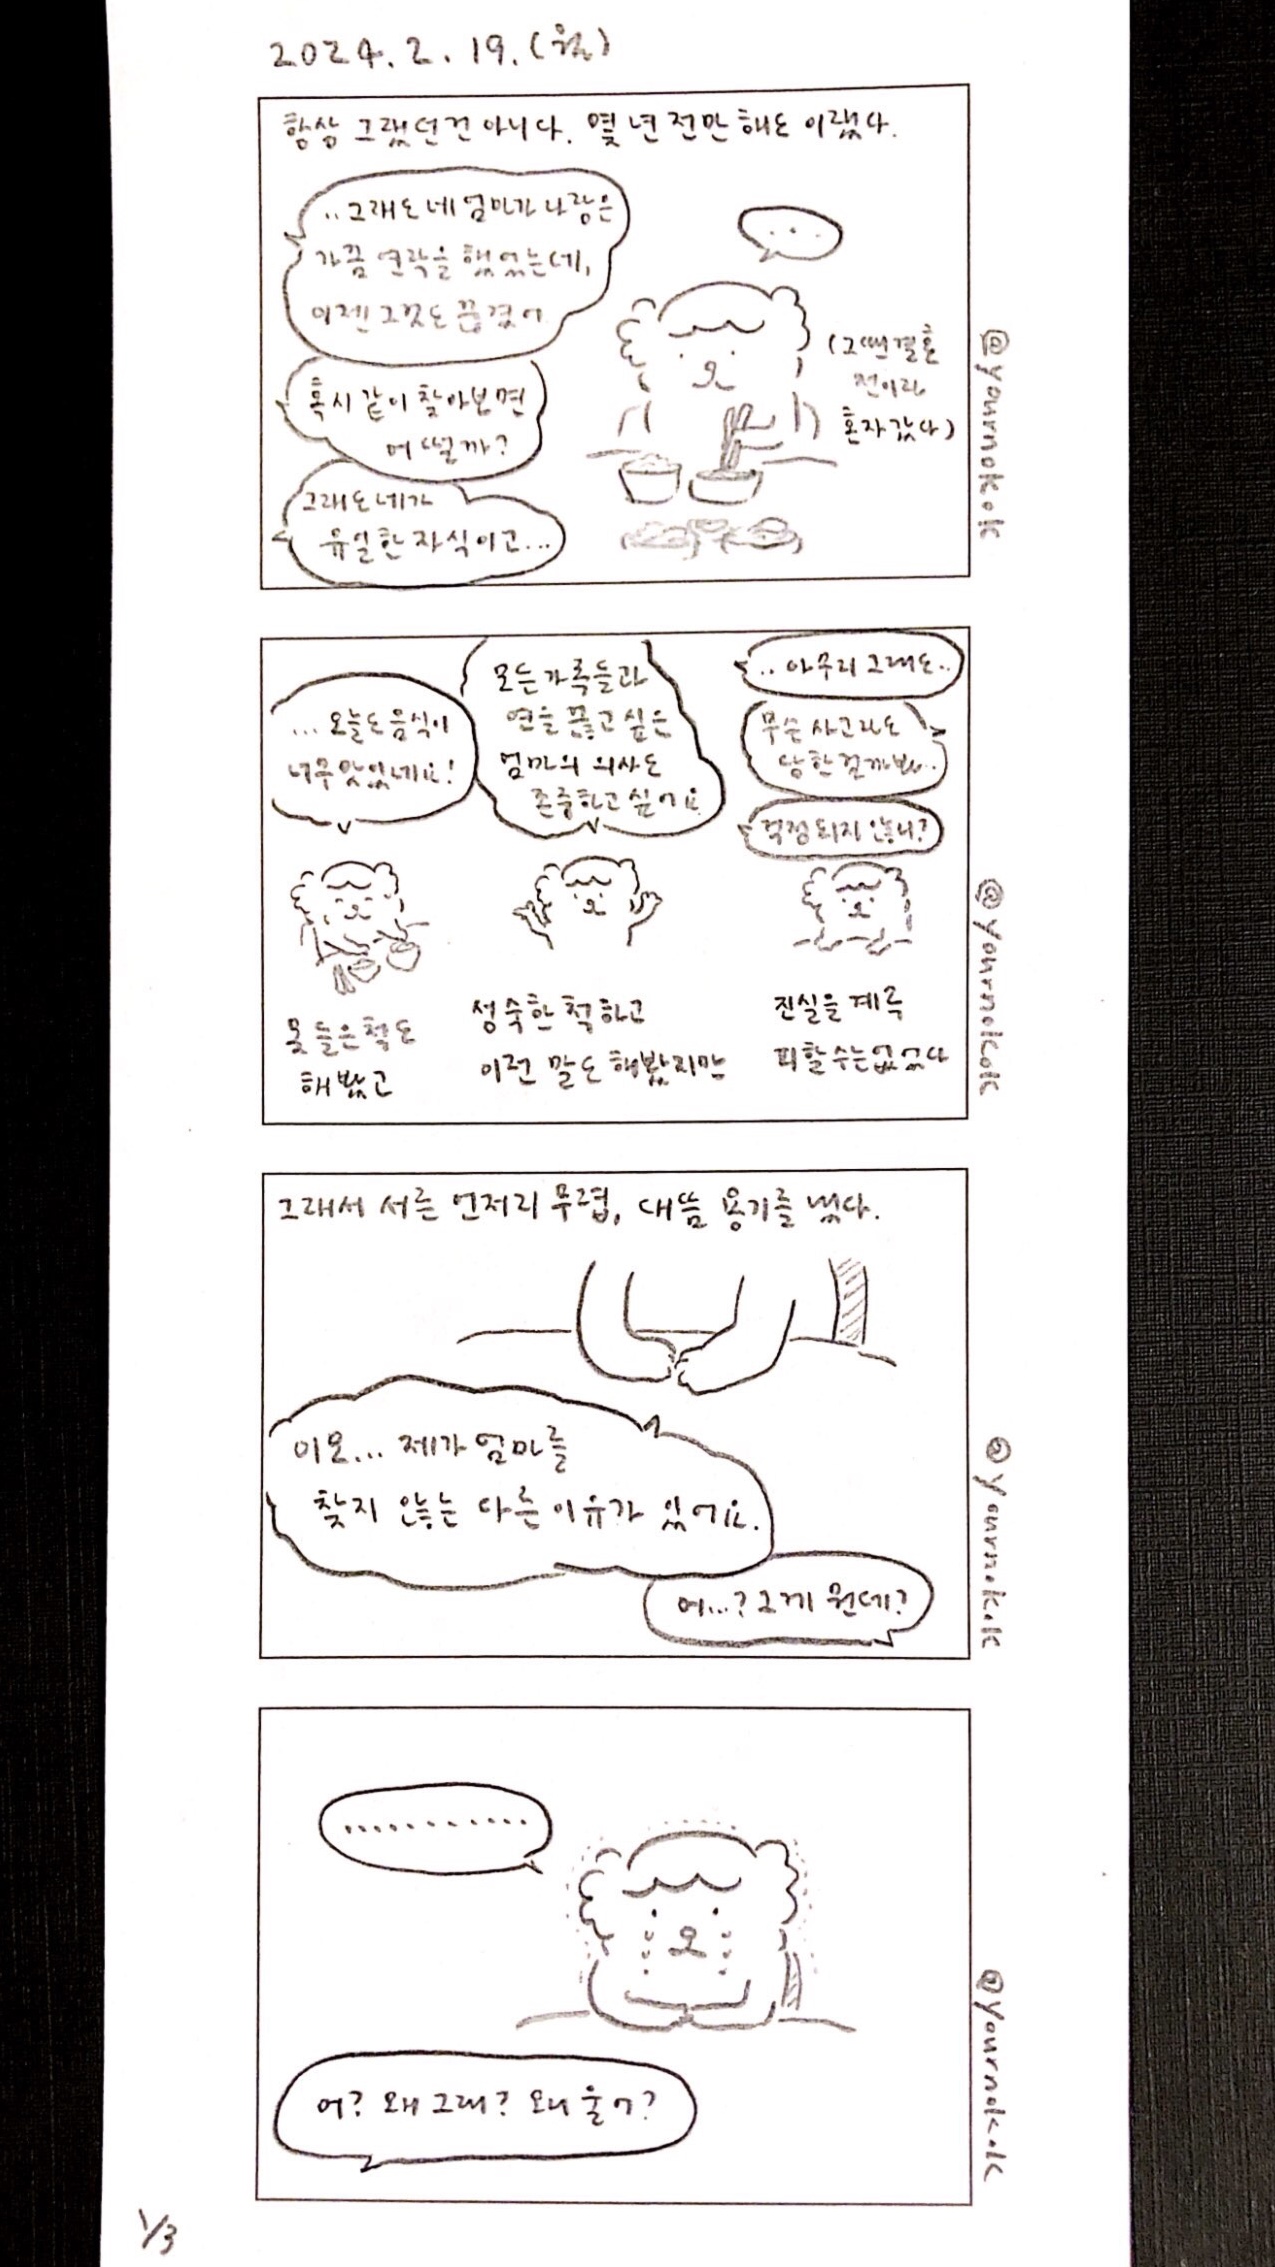 2024. 2. 19. (월)
항상 그랬던건 아니다. 몇 년 전만 해도 이랬다.
..그래도 네 엄마가 나랑은
가끔 연락을 했었는데,
이젠 그것도 끊겼어
...
혹시 같이 찾아보면
어떨까?
그래도 네가
유일한 자식이고...
(그땐 결혼
전이라
혼자갔다)
@yournok.k
...오늘도 음식이
너무 맛있네요!
모든 가족들과
연을 끊고 싶은
엄마의 의사도
존중하고 싶어요
..아무리 그래도..
무슨 사고라도
당한걸까봐..
걱정되지 않니?
못 들은 척도
해 봤고
성숙한 척하고
이런 말도 해봤지만
진실을 계속
피할 수는 없었다
@yournok.k
그래서 서른 언저리 무렵, 대뜸 용기를 냈다.
이모... 제가 엄마를
찾지 않는 다른 이유가 있어요.
어...? 그게 뭔데?
@yournok.k
...........
어? 왜 그래? 왜 울어?
@yournok.k
1/3